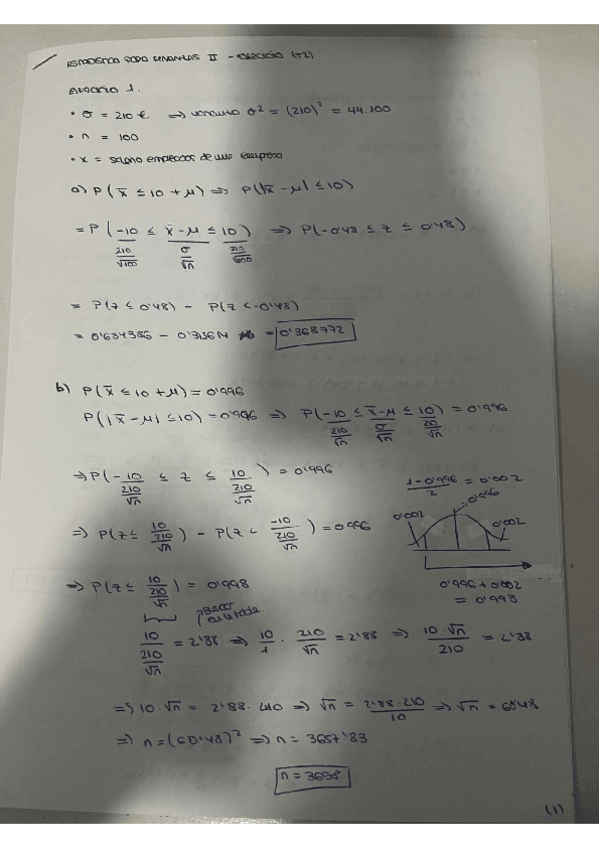 ESTADÍSTICA PARA FINANZAS II - EJERCICIO (T2)
EJERCICIO 1.
• σ = 210 € ⇒ varianza σ² = (210)² = 44.100
• n = 100
• x = salario empleados de una empresa.
a) P ( x̄ ≤ 10 + μ ) ⇒ P(|x̄ - μ| ≤ 10)
= P ( -10 / (210/√100) ≤ (x̄ - μ) / (σ/√n) ≤ 10 / (210/√100) ) ⇒ P(-0'48 ≤ z ≤ 0'48)
= P(z ≤ 0'48) - P(z ≤ -0'48)
= 0'684386 - 0'315614 = 0'368772
b) P(x̄ ≤ 10 + μ) = 0'996
P(|x̄ - μ| ≤ 10) = 0'996 ⇒ P( -10 / (210/√n) ≤ (x̄ - μ) / (σ/√n) ≤ 10 / (210/√n) ) = 0'996
⇒ P( - 10 / (210/√n) ≤ z ≤ 10 / (210/√n) ) = 0'996
(1 - 0'996) / 2 = 0'002
0'996
0'002
0'002
⇒ P(z ≤ 10 / (210/√n) ) - P(z ≤ -10 / (210/√n) ) = 0'996
0'996 + 0'002
= 0'998
⇒ P(z ≤ 10 / (210/√n) ) = 0'998
10 / (210/√n) = 2'88 ⇒ 10/1 · 210/√n = 2'88 ⇒ 10·√n / 210 = 2'88
⇒ 10·√n = 2'88 · 210 ⇒ √n = 2'88·210 / 10 ⇒ √n = 60'48
⇒ n = (60'48)² ⇒ n = 3657'83
n = 3658
(1)